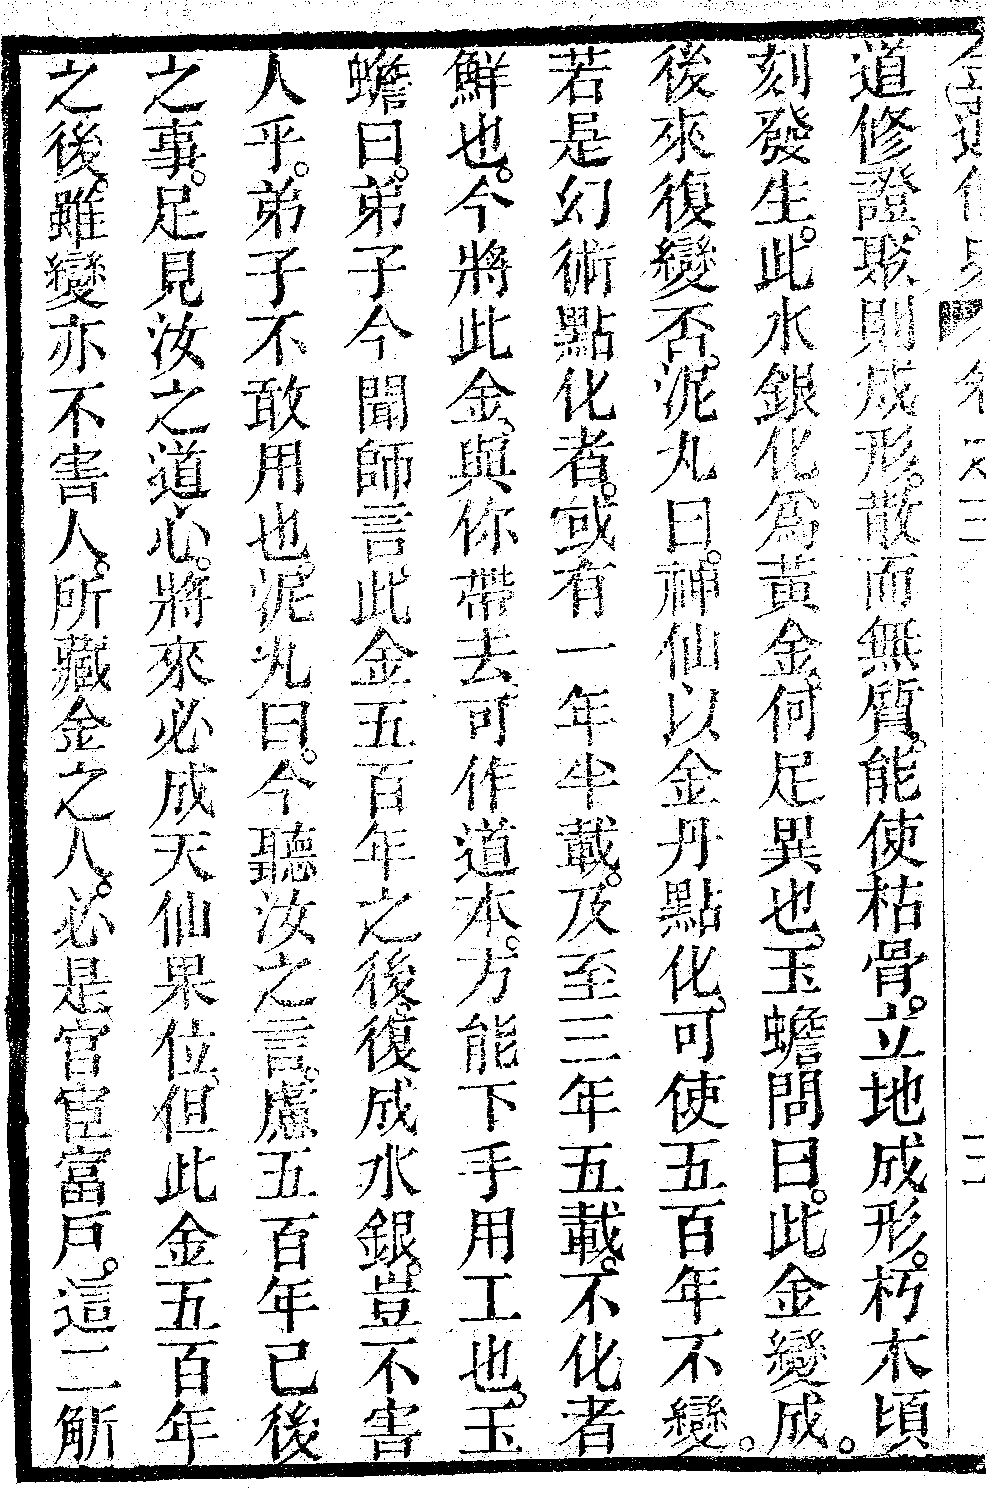 道修證。聚則成形。散而無質。能使枯骨。立地成形。朽木頃
刻發生。此水銀化為黃金。何足異也。玉蟾問曰。此金變成。
後來復變否。泥丸曰。神仙以金丹點化。可使五百年不變。
若是幻術點化者。或有一年半載。及至三年五載。不化者
鮮也。今將此金。與你帶去。可作道本。方能下手用工也。玉
蟾曰。弟子今聞師言此金五百年之後。復成水銀。豈不害
人乎。弟子不敢用也。泥丸曰。今聽汝之言。慮五百年已後
之事。足見汝之道心。將來必成天仙果位。但此金五百年
之後。雖變亦不害人。所藏金之人。必是官宦富戶。這二觔